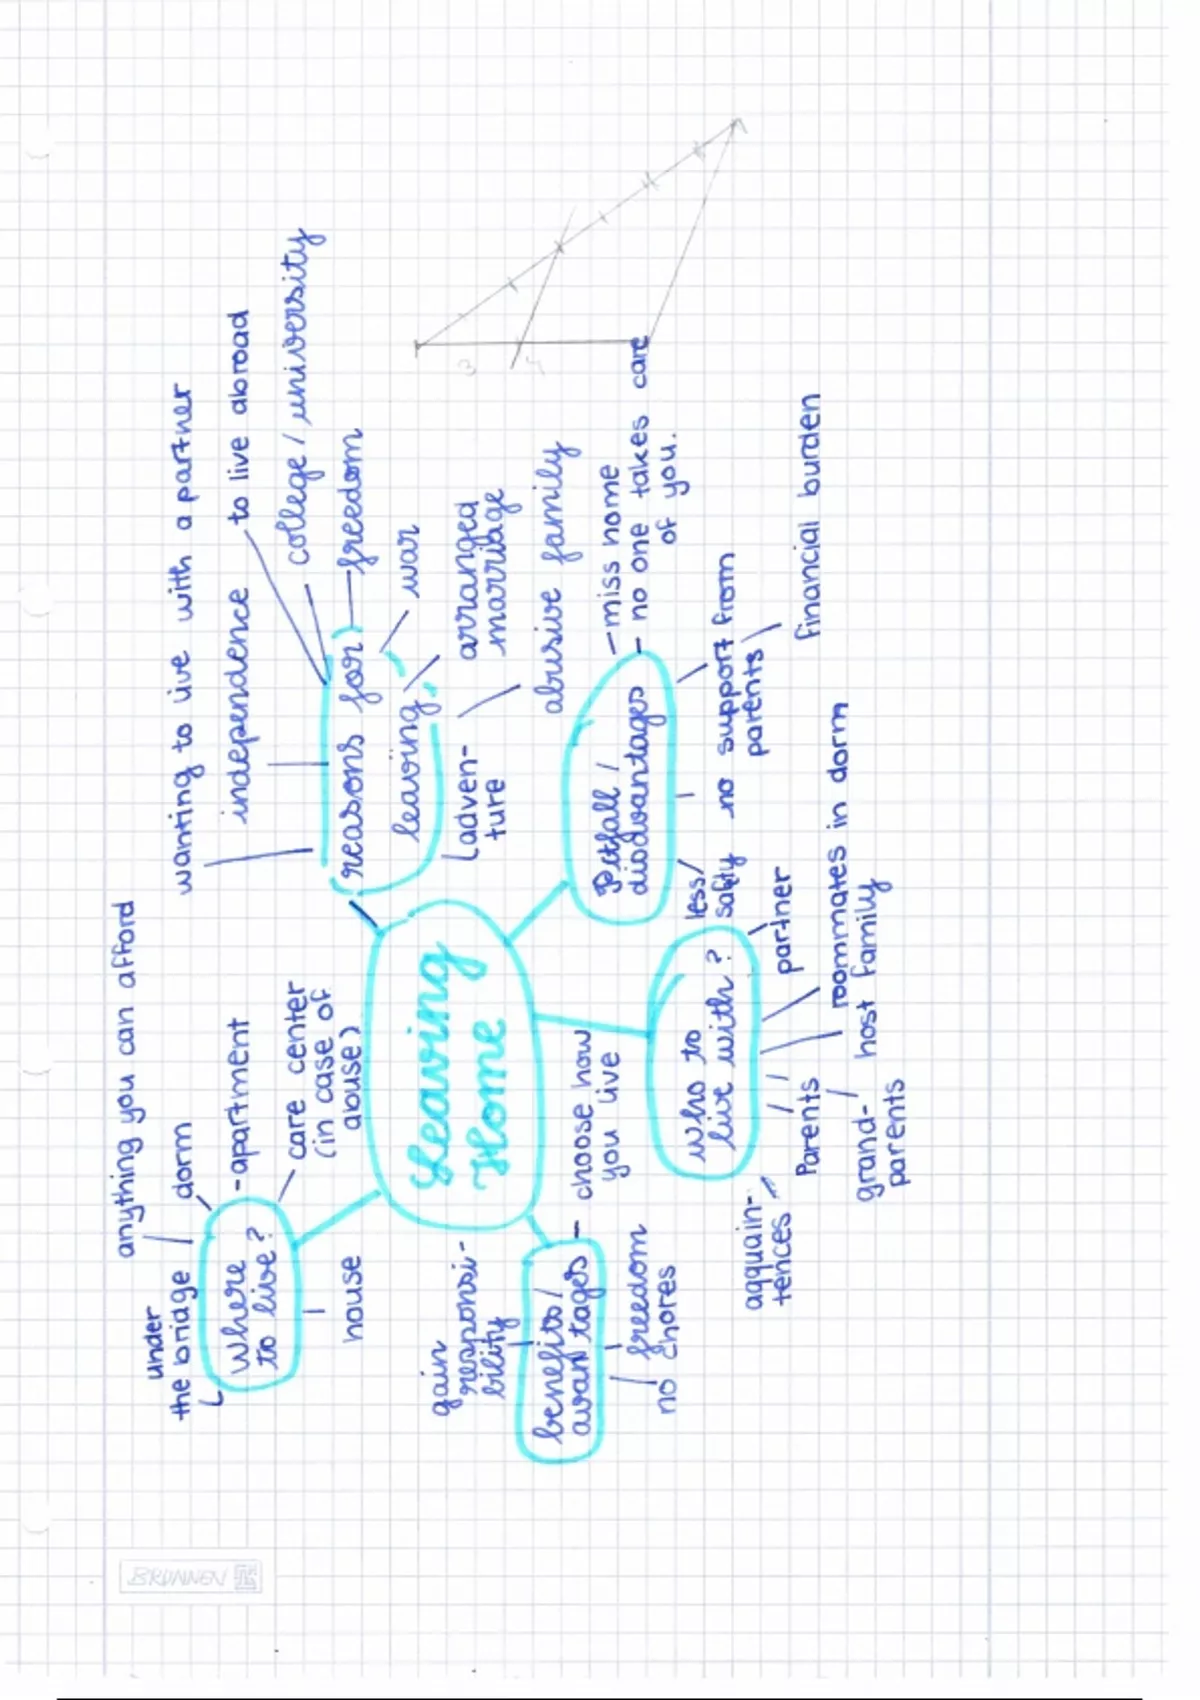 Leaving
Home
Where
to live?
under
the bridge
anything you can afford
dorm
-apartment
care center
(in case of
abuse)
house
reasons for
leaving
wanting to live with a partner
independence
to live abroad
college / university
freedom
war
arranged
marriage
abusive family
adven-
ture
Pitfall /
disadvantages
- miss home
- no one takes care
of you.
no support from
parents
financial burden
less
safty
who to
live with?
partner
roommates in dorm
host family
grand-
parents
Parents
aqquain-
tences
benefits/
avantages
gain
responsi-
bility
- choose how
you live
freedom
no chores
3
4
BRUNNEN